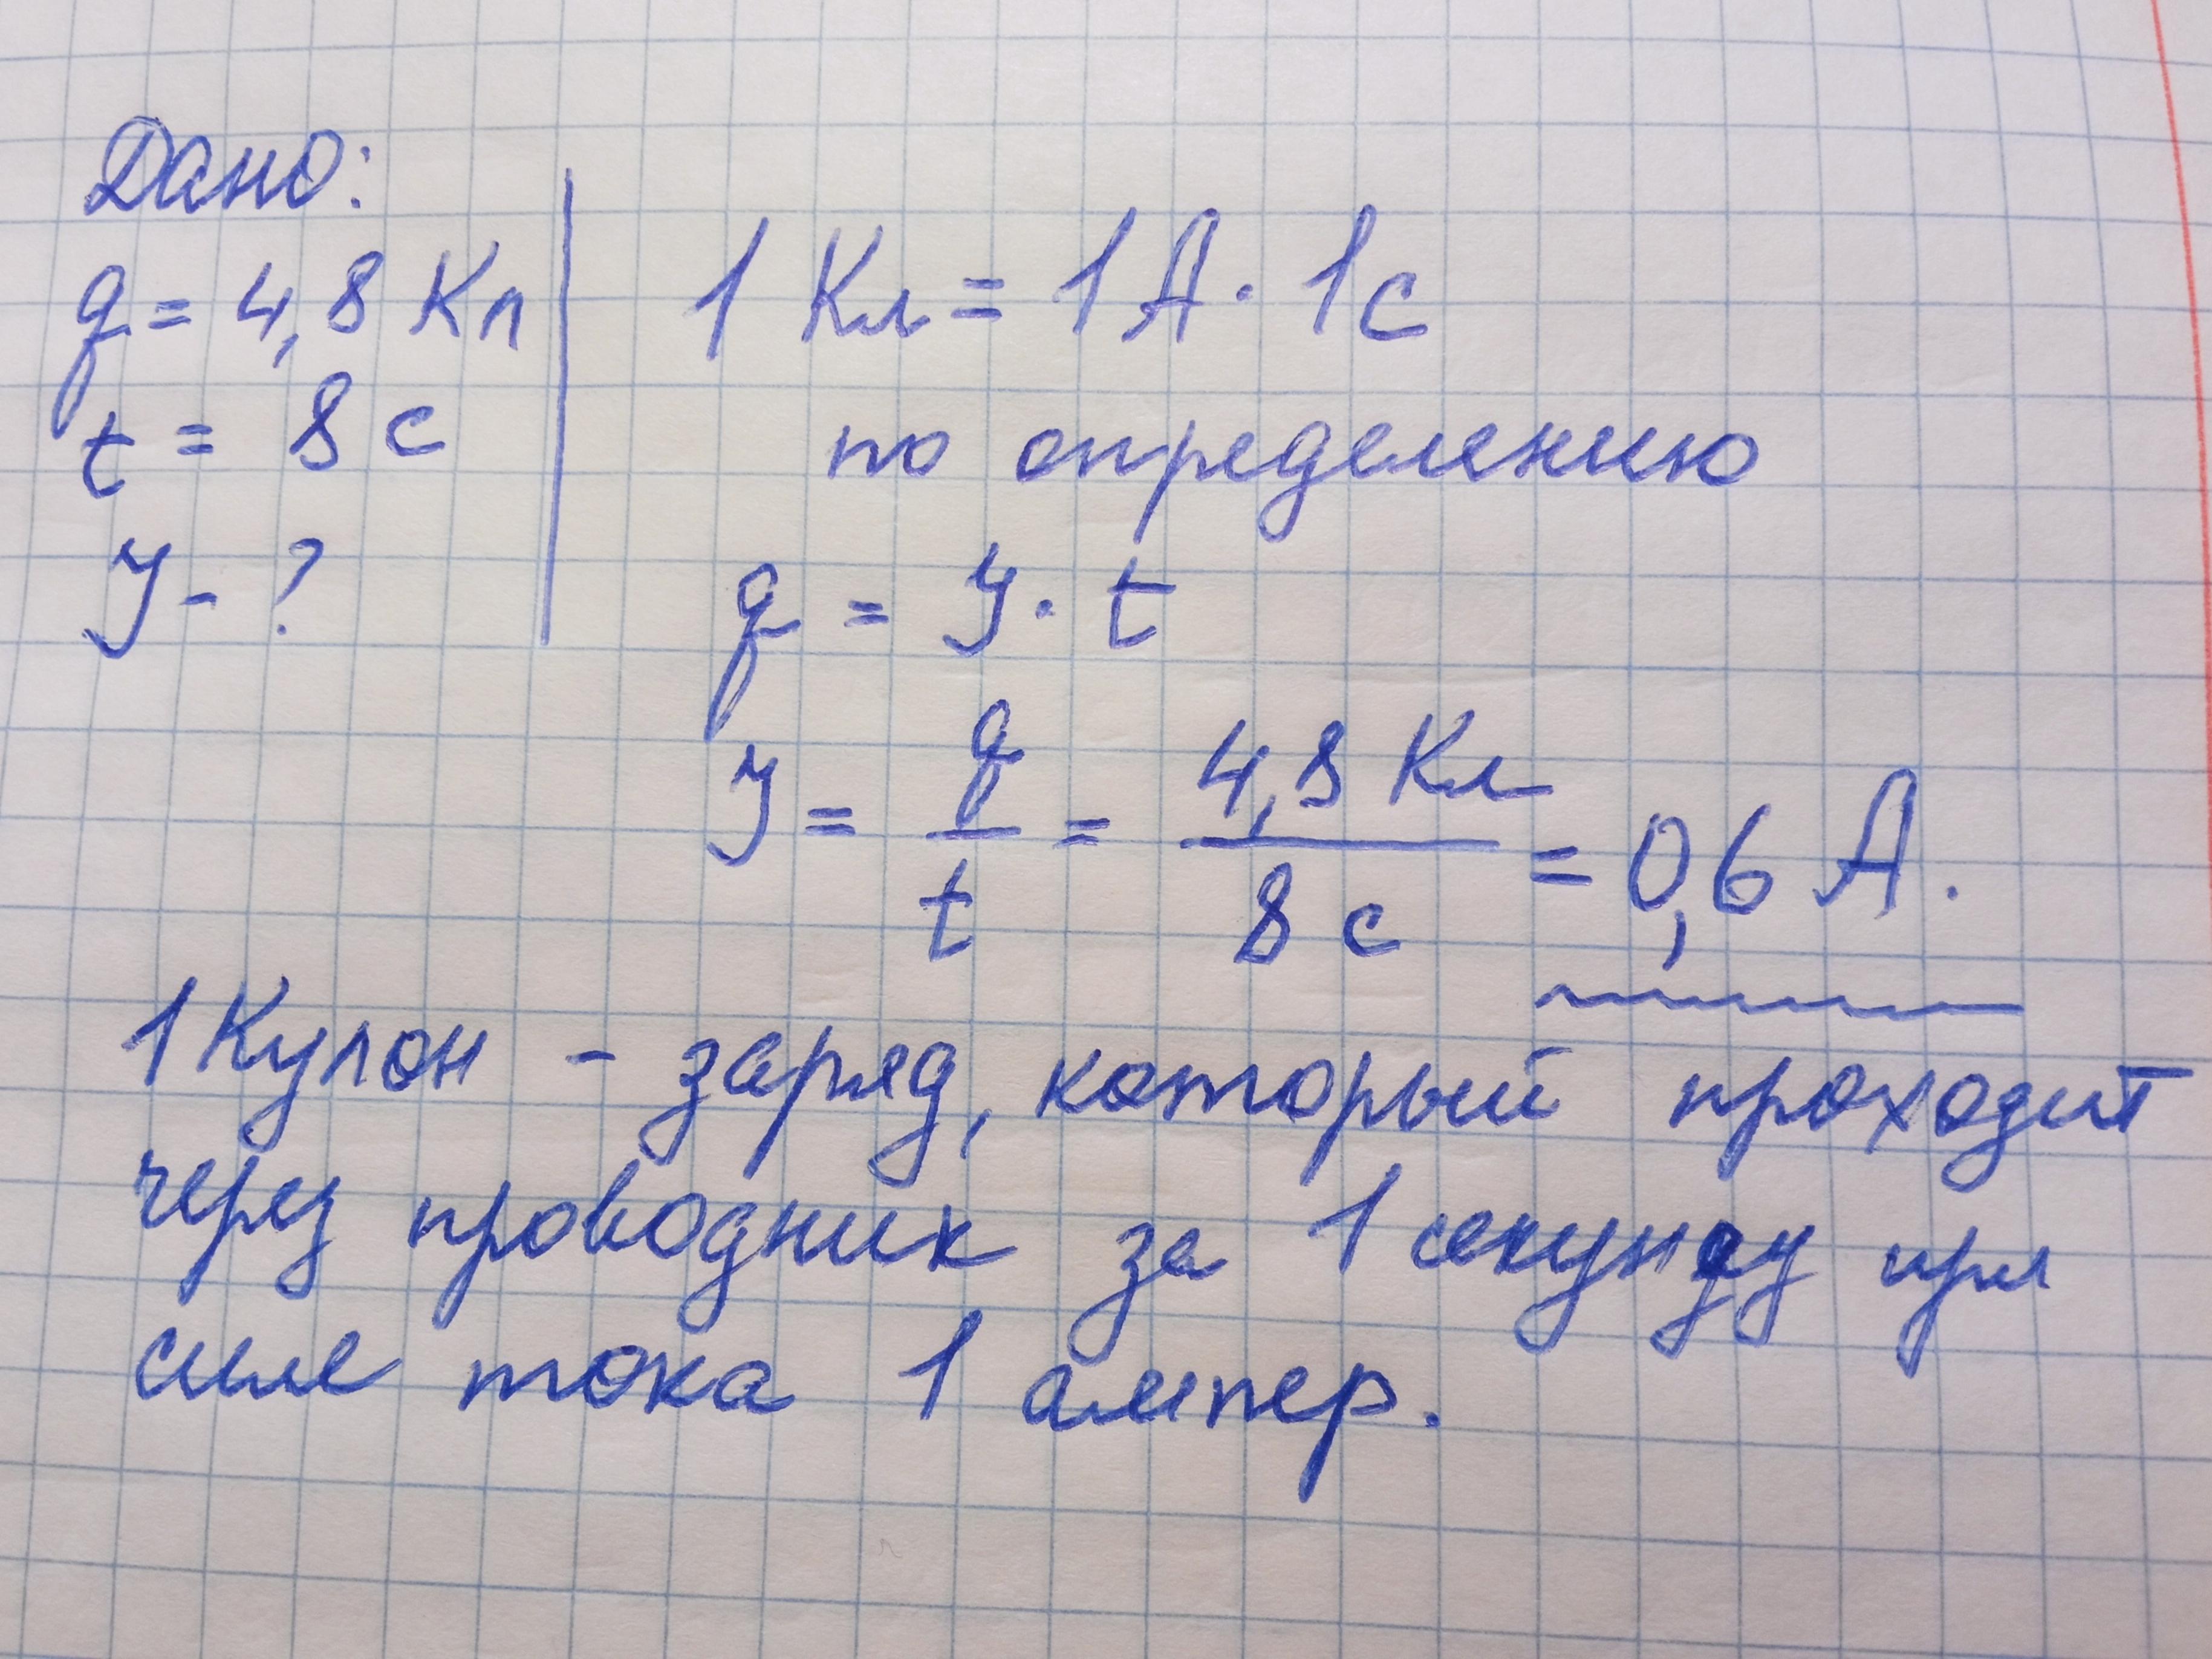 Дано:
q = 4,8 Кл
t = 8 с
У - ?
1 Кл = 1 А · 1 с
по определению
q = У · t
У = q / t = 4,8 Кл / 8 с = 0,6 А.
1 Кулон - заряд, который проходит
через проводник за 1 секунду при
силе тока 1 ампер.